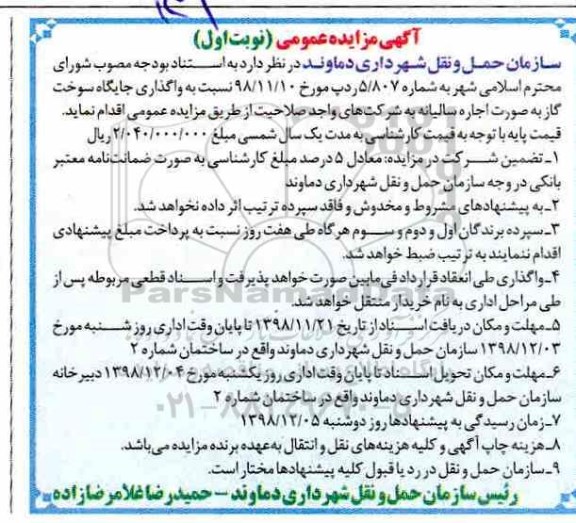 آگهی مزایده عمومی (نوبت اول)
سازمان حمل و نقل شهرداری دماوند در نظر دارد به استناد بودجه مصوب شورای
محترم اسلامی شهر به شماره ۵/۸۰۷ ردپ مورخ ۹۸/۱۱/۱۰ نسبت به واگذاری جایگاه سوخت
گاز به صورت اجاره سالیانه به شرکت‌های واجد صلاحیت از طریق مزایده عمومی اقدام نماید.
قیمت پایه با توجه به قیمت کارشناسی به مدت یک سال شمسی مبلغ ۲/۰۴۰/۰۰۰/۰۰۰ ریال
۱ـ تضمین شرکت در مزایده: معادل ۵ درصد مبلغ کارشناسی به صورت ضمانت‌نامه معتبر
بانکی در وجه سازمان حمل و نقل شهرداری دماوند
۲ـ به پیشنهادهای مشروط و مخدوش و فاقد سپرده ترتیب اثر داده نخواهد شد.
۳ـ سپرده برندگان اول و دوم و سوم هرگاه طی هفت روز نسبت به پرداخت مبلغ پیشنهادی
اقدام ننمایند به ترتیب ضبط خواهد شد.
۴ـ واگذاری طی انعقاد قرارداد فی‌مابین صورت خواهد پذیرفت و اسناد قطعی مربوطه پس از
طی مراحل اداری به نام خریدار منتقل خواهد شد.
۵ـ مهلت و مکان دریافت اسناد از تاریخ ۱۳۹۸/۱۱/۲۱ تا پایان وقت اداری روز شنبه مورخ
۱۳۹۸/۱۲/۰۳ سازمان حمل و نقل شهرداری دماوند واقع در ساختمان شماره ۲
۶ـ مهلت و مکان تحویل اسناد تا پایان وقت اداری روز یکشنبه مورخ ۱۳۹۸/۱۲/۰۴ دبیرخانه
سازمان حمل و نقل شهرداری دماوند واقع در ساختمان شماره ۲
۷ـ زمان رسیدگی به پیشنهادها روز دوشنبه ۱۳۹۸/۱۲/۰۵
۸ـ هزینه چاپ آگهی و کلیه هزینه‌های نقل و انتقال به عهده برنده مزایده می‌باشد.
۹ـ سازمان حمل و نقل در رد یا قبول کلیه پیشنهادها مختار است.
رئیس سازمان حمل و نقل شهرداری دماوند – حمیدرضا غلامرضازاده
ParsNamadData